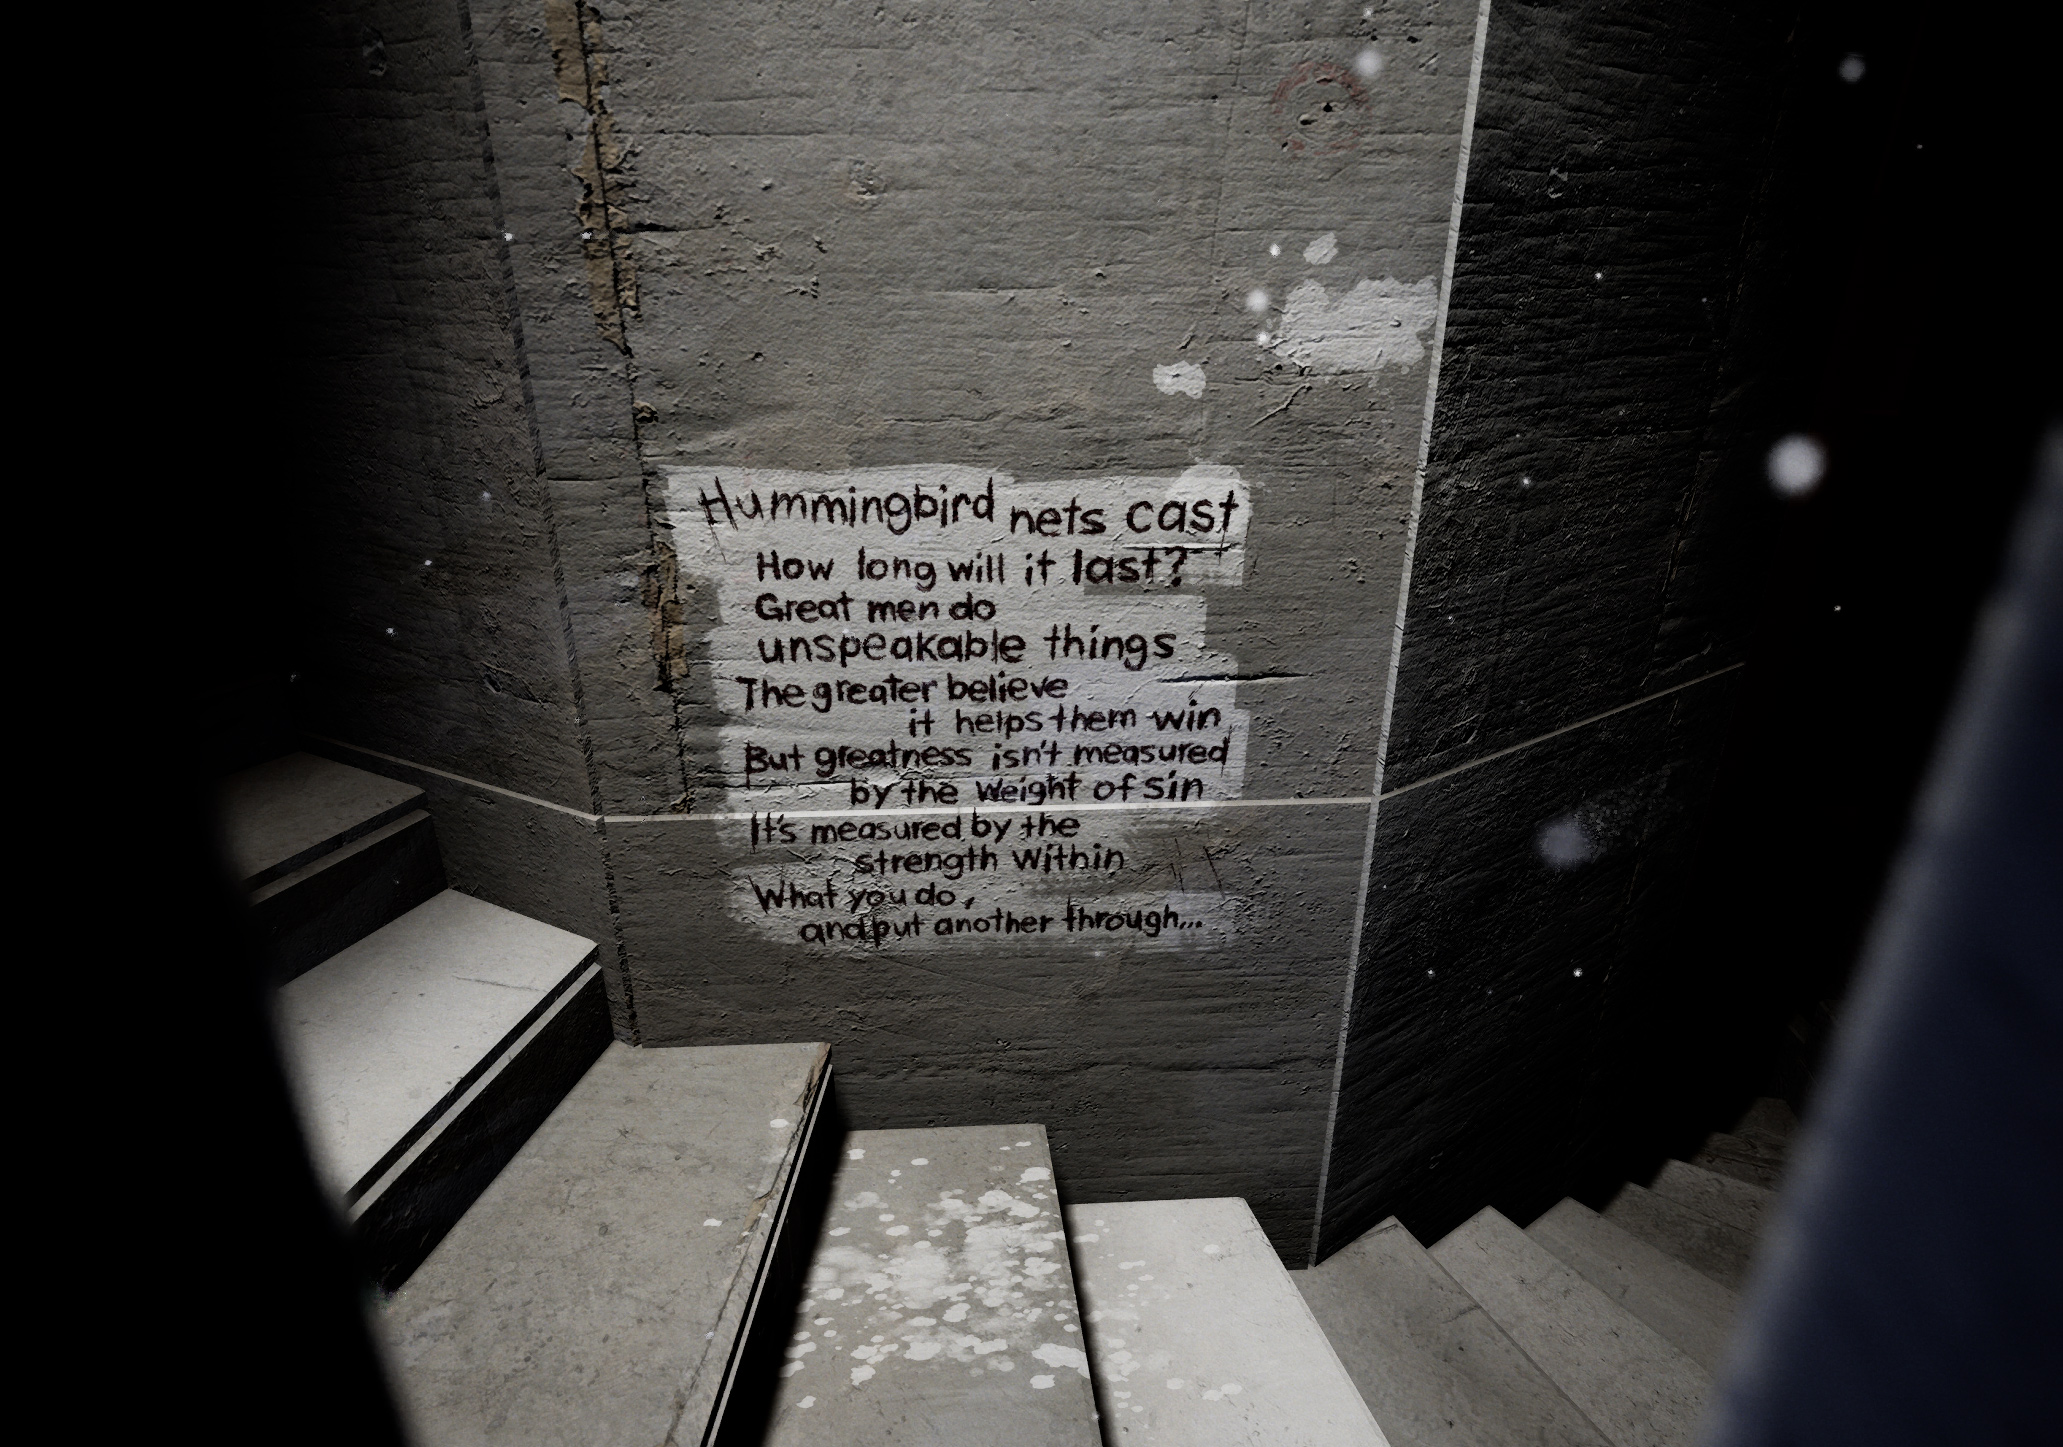 Hummingbird nets cast
How long will it last?
Great men do
unspeakable things
The greater believe
it helps them win
But greatness isn't measured
by the weight of sin
It's measured by the
strength within
What you do,
and put another through...